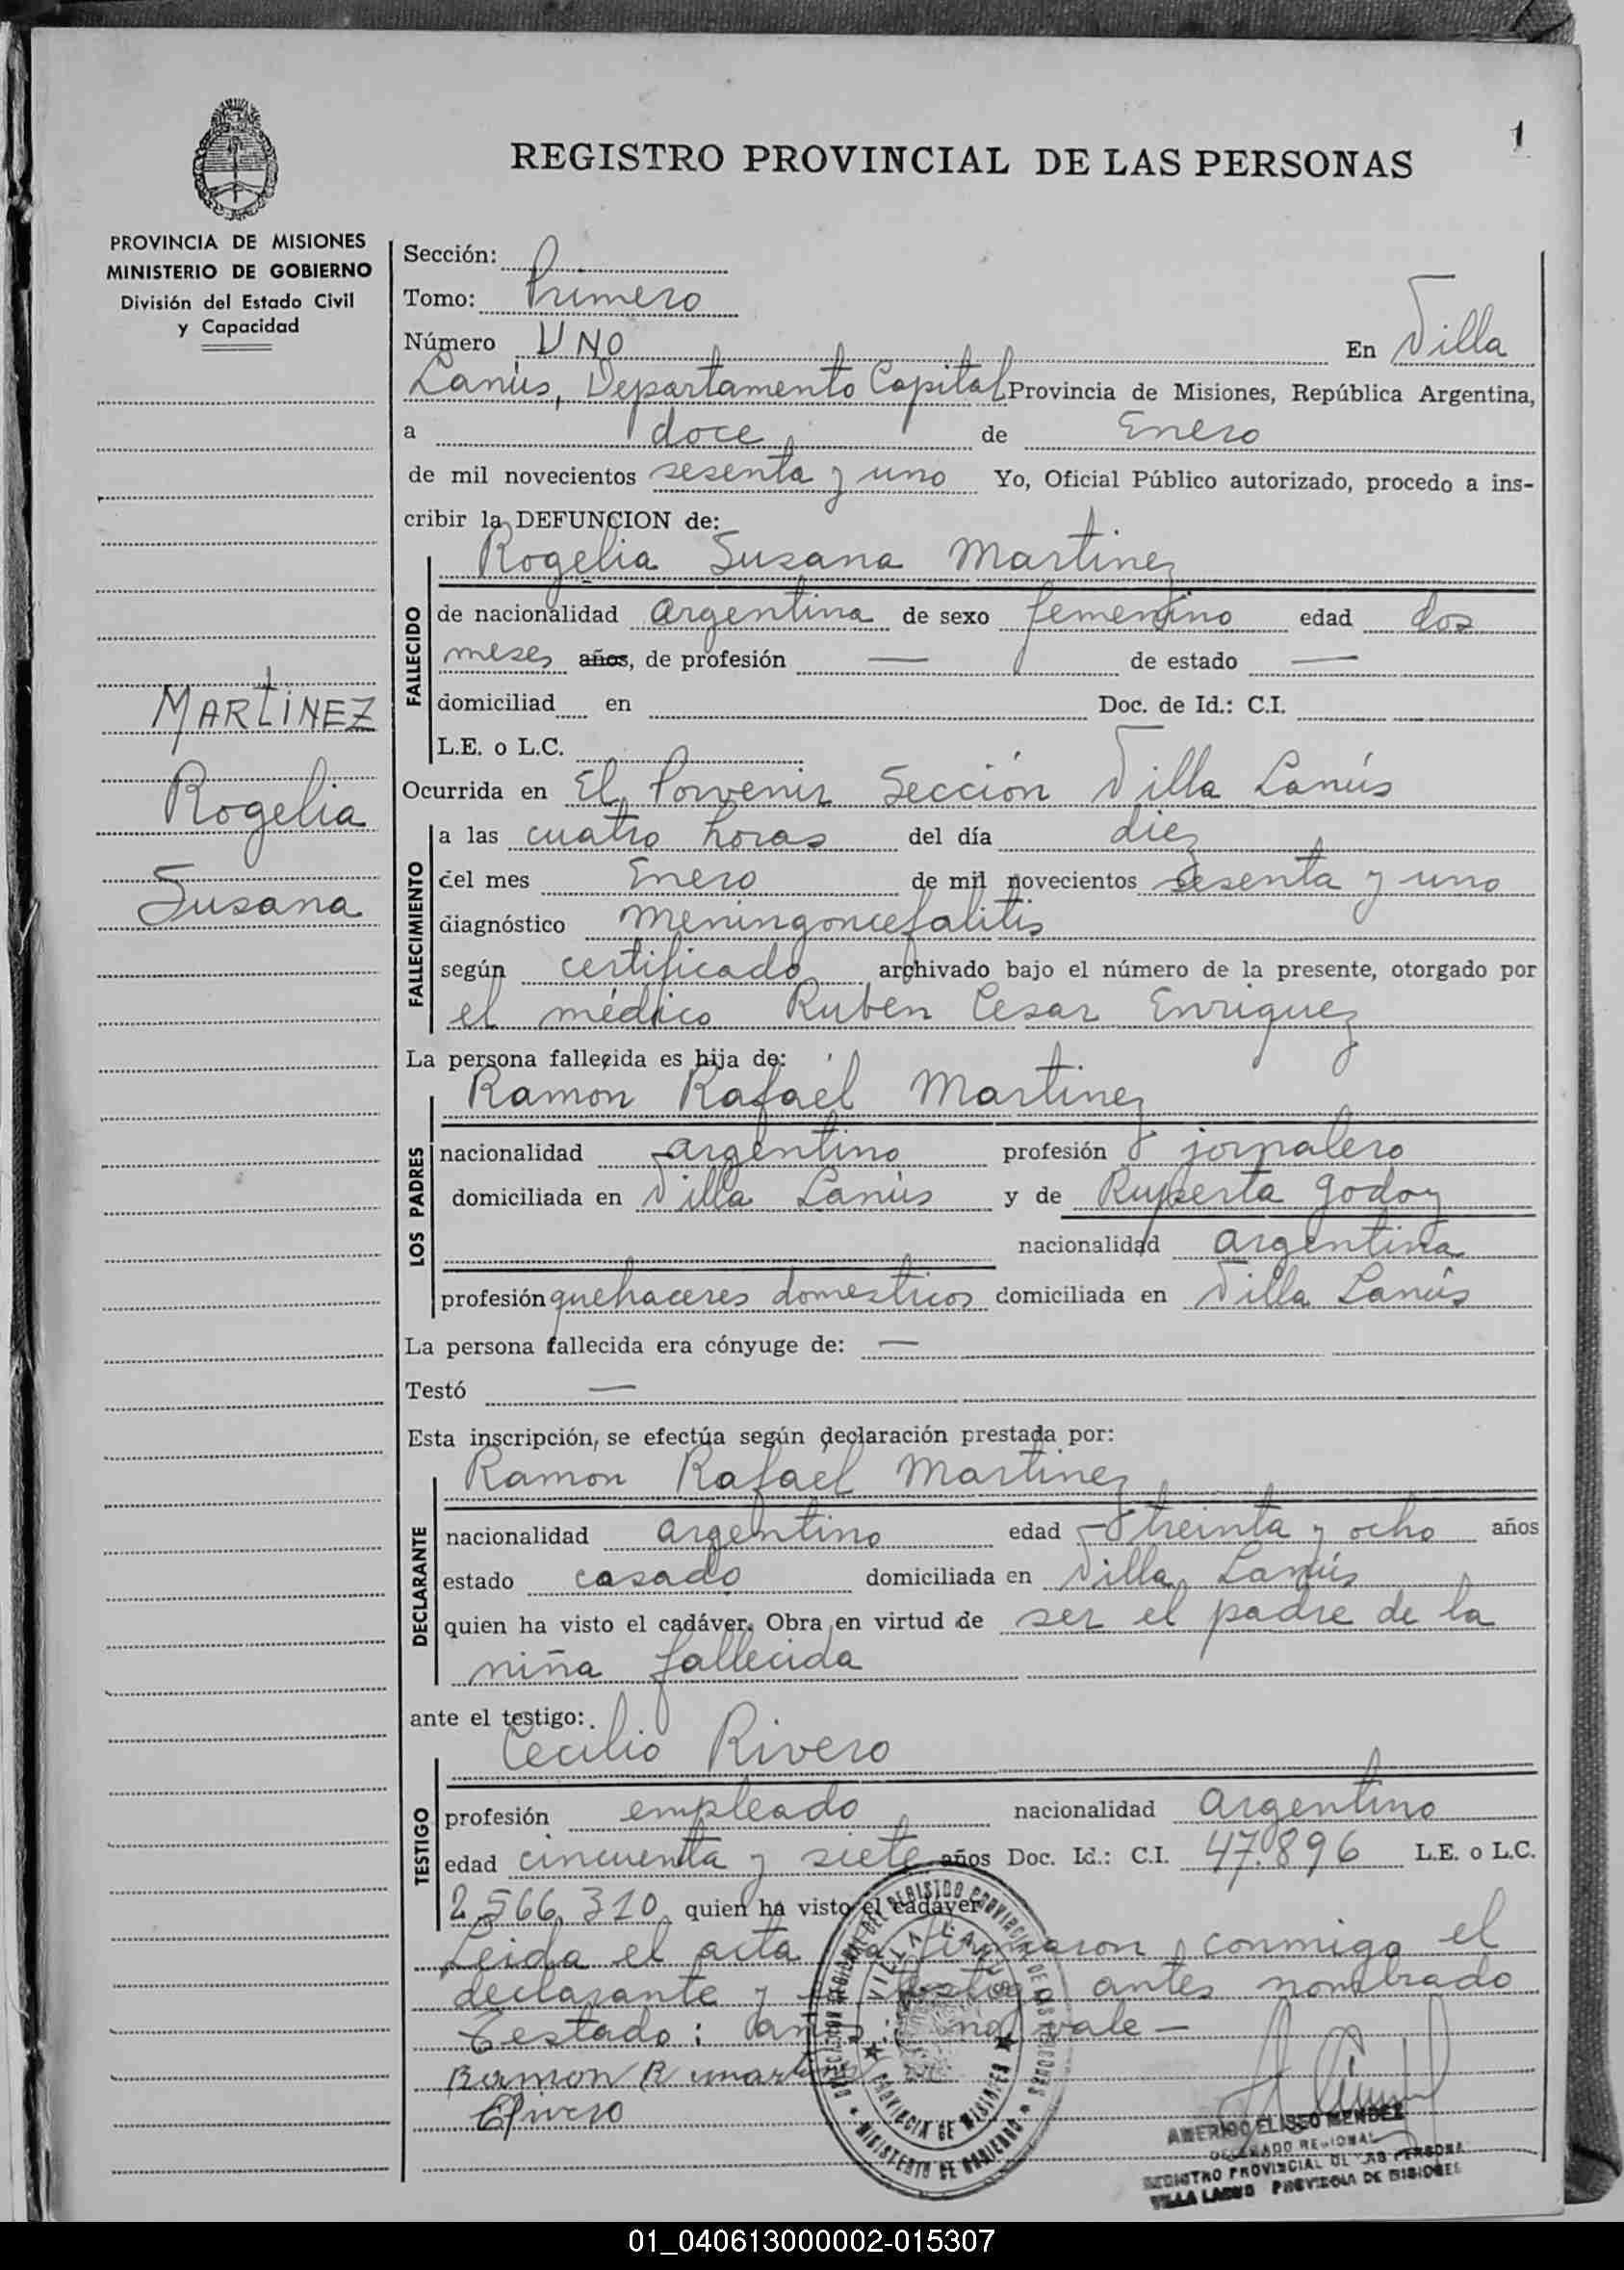 1
REGISTRO PROVINCIAL DE LAS PERSONAS
PROVINCIA DE MISIONES
MINISTERIO DE GOBIERNO
División del Estado Civil
y Capacidad
MARTINEZ
Rogelia
Susana
Sección:
Tomo: Primero
Número UNO En Villa
Lanús, Departamento Capital Provincia de Misiones, República Argentina,
a doce de Enero
de mil novecientos sesenta y uno Yo, Oficial Público autorizado, procedo a ins-
cribir la DEFUNCION de:
Rogelia Susana Martinez
FALLECIDO
de nacionalidad argentina de sexo femenino edad dos
meses años, de profesión — de estado —
domiciliad en Doc. de Id.: C.I.
L.E. o L.C.
Ocurrida en El Porvenir Sección Villa Lanús
FALLECIMIENTO
a las cuatro horas del día diez
del mes Enero de mil novecientos sesenta y uno
diagnóstico meningoncefalitis
según certificado archivado bajo el número de la presente, otorgado por
el médico Ruben Cesar Enriquez
La persona fallecida es hija de:
Ramon Rafael Martinez
LOS PADRES
nacionalidad argentino profesión jornalero
domiciliada en Villa Lanús y de Ruperta Godoy
nacionalidad argentina
profesión quehaceres domesticos domiciliada en Villa Lanús
La persona fallecida era cónyuge de: —
Testó —
Esta inscripción, se efectúa según declaración prestada por:
Ramon Rafael Martinez
DECLARANTE
nacionalidad argentino edad treinta y ocho años
estado casado domiciliada en Villa Lanús
quien ha visto el cadáver. Obra en virtud de ser el padre de la
niña fallecida
ante el testigo:
Cecilio Rivero
TESTIGO
profesión empleado nacionalidad argentino
edad cincuenta y siete años Doc. Id.: C.I. 47.896 L.E. o L.C.
2.566.310 quien ha visto el cadáver
Leida el acta la firmaron conmigo el
declarante y testigo antes nombrado
Testado: años: no vale —
Ramon R martinez
CRivero
VILLA LANUS
PROVINCIA DE MISIONES
MINISTERIO DE GOBIERNO
AMERICO ELISEO MENDEZ
DELEGADO REGIONAL
REGISTRO PROVINCIAL DE LAS PERSONAS
VILLA LANUS PROVINCIA DE MISIONES
01_040613000002-015307